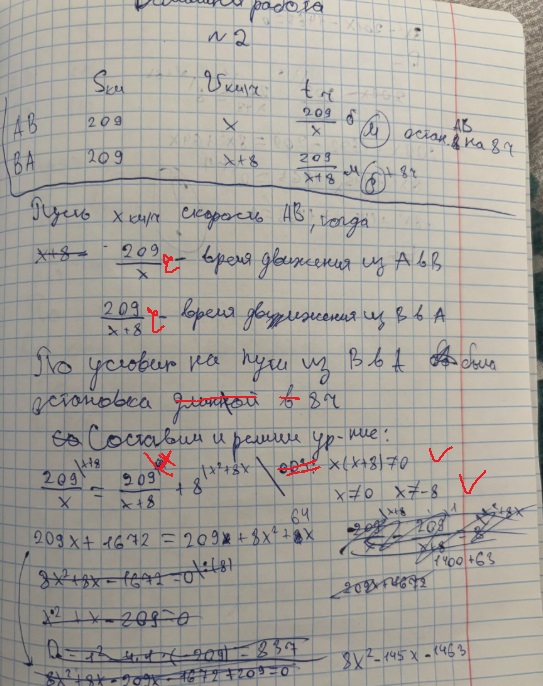 Домашняя работа
n 2
Sкм vкм/ч t ч
AB 209 x 209/x б (м) остан. AB на 8ч
BA 209 x+8 209/x+8 м (б) + 8ч
Пусть x км/ч скорость AB, тогда
x+8 = 209/x ч - время движения из A в B
209/x+8 ч - время движения из B в A
По условию на пути из B в A была
остановка длиной в 8ч
Составим и решим ур-ние:
209/x |x+8 = 209/x+8 |x + 8 |x²+8x \ x(x+8)≠0
x≠0 x≠-8
209x + 1672 = 209x + 8x² + 64x
8x² + 8x - 1672 = 0 |:(8)
1400 + 63
209x+1672
x² + x - 209 = 0
D = 1² - 4·1·(-209) = 837
8x² - 145x - 1463
8x² + 8x - 209x - 1672 + 209 = 0